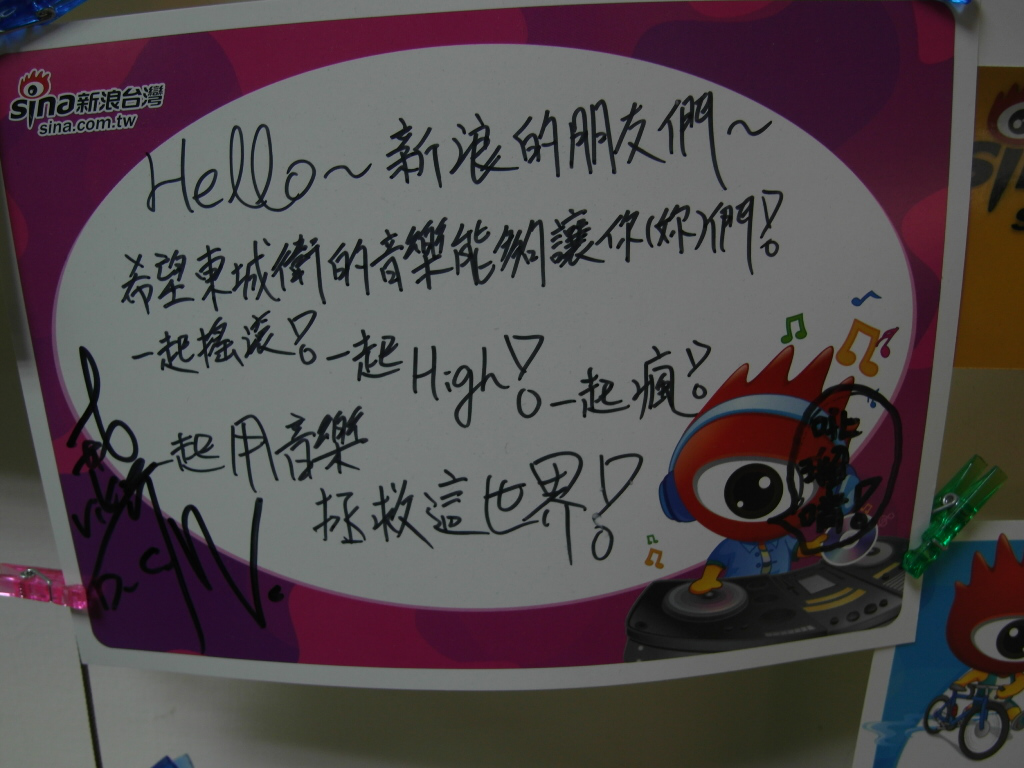 sina新浪台灣
sina.com.tw
Hello~新浪的朋友們~
希望東城衛的音樂能夠讓你(妳)們!
一起搖滾!一起High!一起瘋!
一起用音樂
拯救這世界!